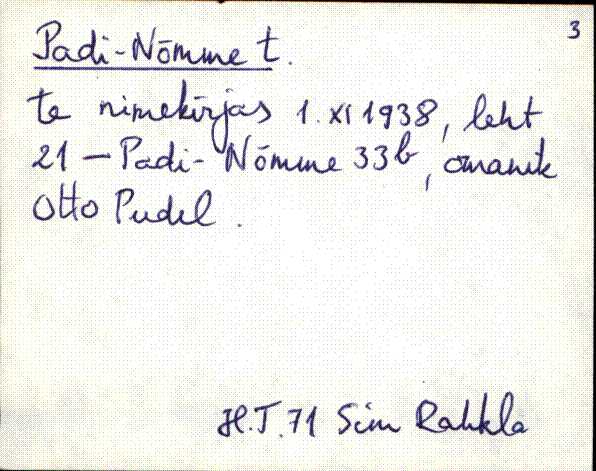 3
Padi-Nõmme t.
te nimekirjas 1. XI 1938, leht
21 — Padi-Nõmme 33b, omanik
Otto Pudel.
H.T. 71 Sim Rahkla